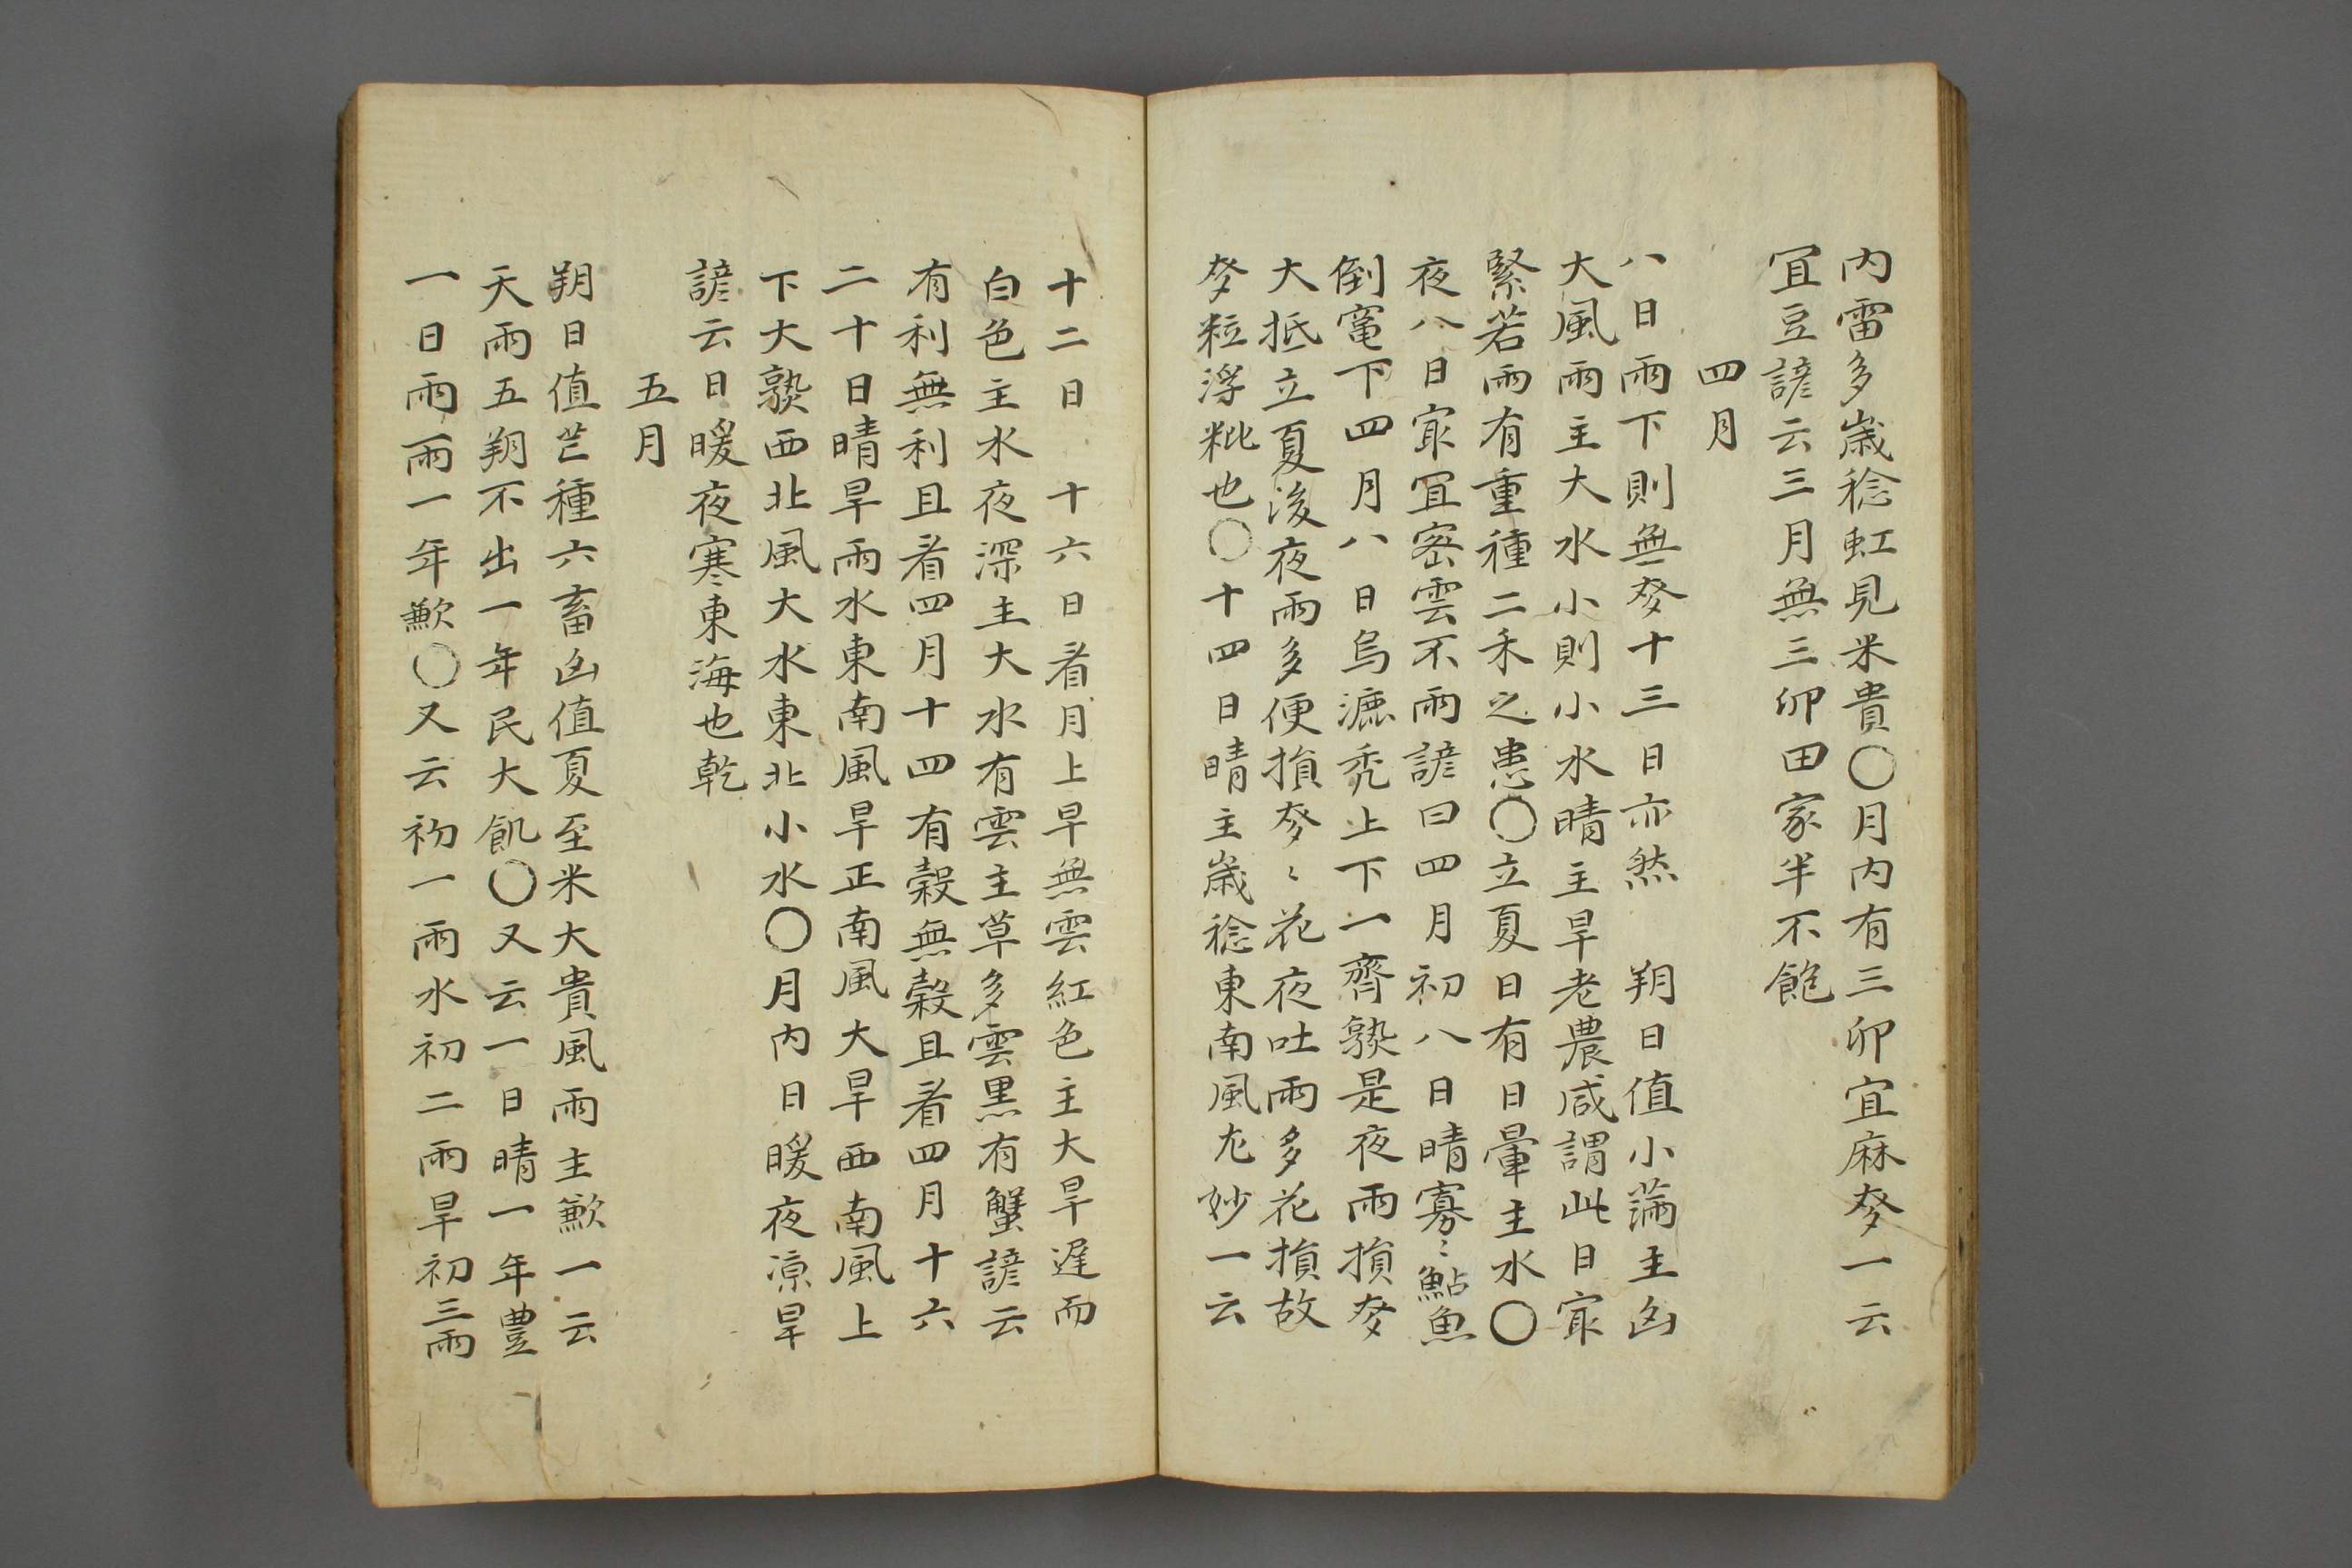 內雷多歲稔虹見米貴〇月內有三卯宜麻麥一云
冝豆諺云三月無三卯田家半不飽
四月
八日雨下則無麥十三日亦然 朔日値小滿主凶
大風雨主大水小則小水晴主旱老農咸謂此日㝡
緊若雨有重種二禾之患〇立夏日有日暈主水〇
夜八日㝡冝密雲不雨諺曰四月初八日晴寡〻鮎魚
倒竃下四月八日烏漉禿上下一齊孰是夜雨損麥
大抵立夏後夜雨多便損麥〻花夜吐雨多花損故
麥粒浮粃也〇十四日晴主歲稔東南風尤妙一云
十二日 十六日看月上早無雲紅色主大旱遅而
白色主水夜深主大水有雲主草多雲黑有蟹諺云
有利無利且看四月十四有穀無穀且看四月十六
二十日晴旱雨水東南風旱正南風大旱西南風上
下大孰西北風大水東北小水〇月內日暖夜凉旱
諺云日暖夜寒東海也乾
五月
朔日値芒種六畜凶値夏至米大貴風雨主歉一云
天雨五朔不出一年民大飢〇又云一日晴一年豊
一日雨雨一年歉〇又云初一雨水初二雨旱初三雨